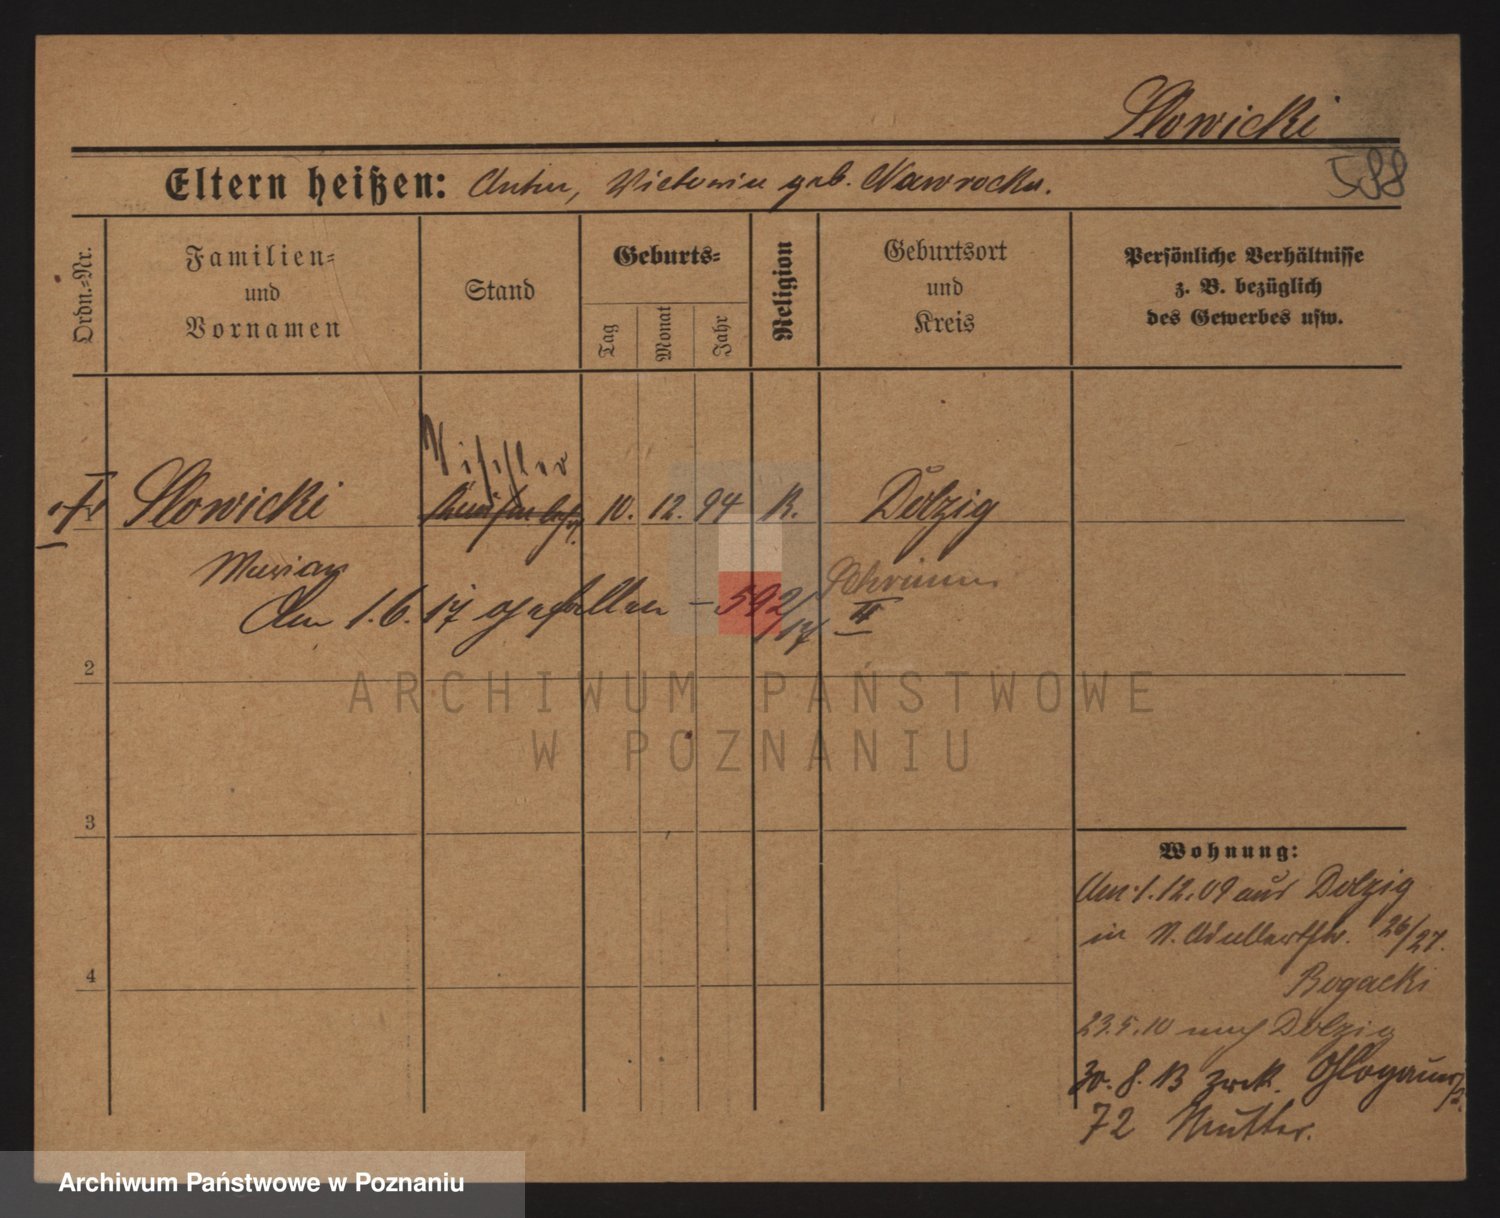 Slowicki
588
Eltern heißen: Anton, Victoria geb. Nawrocka.
Ordn.-Nr.
Familien-
und
Vornamen
Stand
Geburts-
Tag
Monat
Jahr
Religion
Geburtsort
und
Kreis
Persönliche Verhältnisse
z. B. bezüglich
des Gewerbes usw.
Tischler
1 Slowicki 10. 12. 94 K. Dolzig
Maryan Schrimm
Am 1.6.17 gefallen – 592/17 II
2
3
4
ARCHIWUM PAŃSTWOWE
W POZNANIU
Wohnung:
Am 1.12.09 aus Dolzig
in St. Adalbertstr. 26/27.
Bogacki
23.5.10 nach Dolzig
30. 8. 13 zck. Glogauerstr.
72 Mutter.
Archiwum Państwowe w Poznaniu